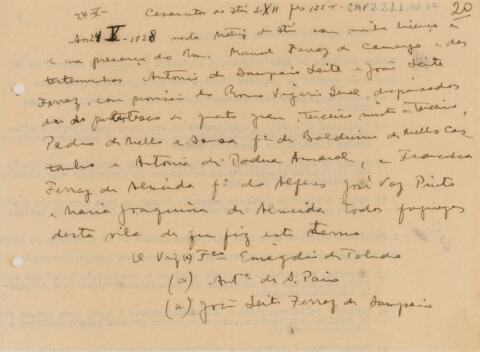 24-V- Casamentos de Itú S. XII fls 155 v. CMP 2.2.1.1. 20
Aos 24-V-1828 nesta Matriz de Itú com minha licença
e na presença do Rvm. Manoel Ferraz de Camargo e das
testemunhas Antonio de Sampaio Leite e João Leite
Ferraz, com provisão do Rvmo Vigario Geral, dispensados
do parentesco de quarto grau terceiro mixto
Pedro de Mello e Souza fº de Balduino de Mello Cas-
tanho e Antonia de Padua Amaral, e Francisca
Ferraz de Almeida fª do Alferes José Vaz Pinto
e Maria Joaquina de Almeida todos freguezes
desta vila de que fiz este termo
O Vigº Fco Emigdio de Toledo
(a) Antº de S. Paio
(a) João Leite Ferraz de Sampaio